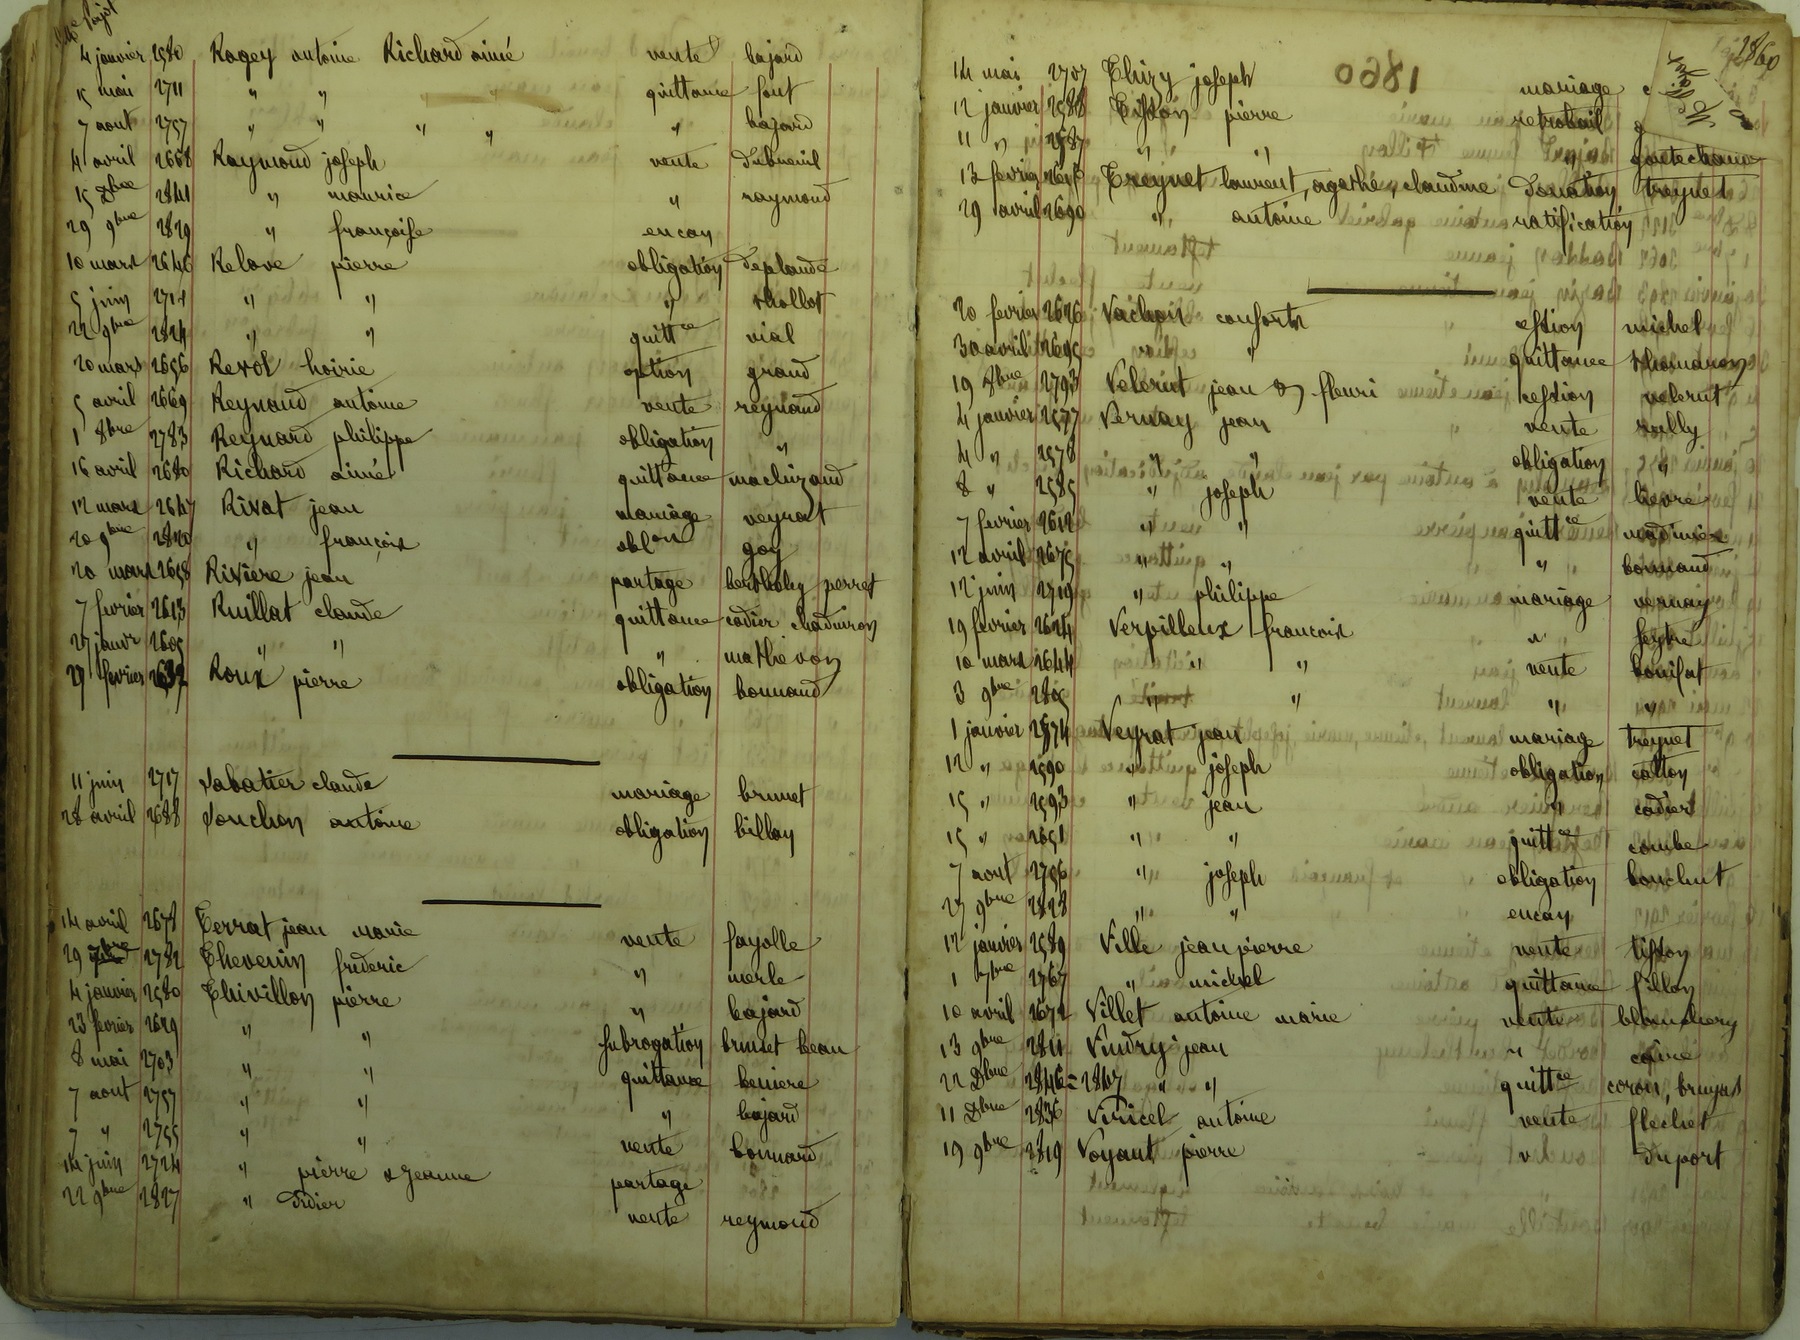 4 janvier 2580 Ragey antoine Richard aimé vente bajard
15 mai 2711 " " quittance font
7 aout 2757 " " " " " bajard
4 avril 2668 Raymond joseph vente Dubreuil
15 Dbre 2841 " maurice " raymond
29 9bre 2829 " françoise encan
10 mars 2646 Relave pierre obligation Deplaude
5 juin 2714 " " " thollot
22 9bre 2824 " " quittce vial
20 mars 2656 Revol hoirie option grand
5 avril 2669 Reynaud antoine vente reynaud
1 8bre 2783 Reynard philippe obligation "
16 avril 2680 Richard aimé quittance machizaud
12 mars 2647 Rivat jean mariage veyrat
20 9bre 2820 " françois oblon goy
20 mars 2658 Rivière jean partage berthoky perret
7 fevrier 2613 Ruillat claude quittance cadier chaduiron
27 janvr 2605 " " " mathevon
27 fevrier 2632 Roux pierre obligation bonnand
11 juin 2717 Sabatier claude mariage brunet
28 avril 2688 Souchon antoine obligation billay
14 avril 2678 Terrat jean marie vente fayolle
29 7bre 2782 Thevenin frederic " merle
4 janvier 2580 Thivillon pierre " bajard
23 fevrier 2629 " " subrogation brunet beau
8 mai 2703 " " quittance beniere
7 aout 2757 " " " bajard
7 " 2755 " " vente bonnard
14 juin 2724 " pierre & jeanne partage
22 9bre 2827 " Didier vente reymond
1860
14 mai 2707 Thizy joseph mariage
12 janvier 2588 Tisson pierre retrobail
11 " 2587 " " " gontechame
13 fevrier 2616 Treynet laurent, agathe, claudine Donation treynet
29 avril 2690 " antoine ratification
20 fevrier 2626 Vachon consorts cession michel
30 avril 2695 " quittance thomason
19 8bre 2793 Velerut jean & fleuri cession velerut
4 janvier 2577 Vernay jean vente rully
4 " 2578 " " obligation "
8 " 2585 " joseph vente lievre
7 fevrier 2612 " " quittce madinier
12 avril 2675 " " " bonnand
12 juin 2719 " philippe mariage vernay
19 fevrier 2624 Verpilleux françois " feytre
10 mars 2644 " " vente bonifat
3 9bre 2805 " " " "
1 janvier 2574 Veyrat jean mariage treynet
12 " 2590 " joseph obligation catton
15 " 2593 " jean " cadier
15 " 2651 " " quittce combe
7 aout 2756 " joseph obligation bouchut
27 9bre 2828 " " encan
12 janvier 2589 Ville jean pierre vente tisson
1 7bre 2767 " michel quittance fillon
10 avril 2672 Villet antoine marie vente blanchery
13 9bre 2811 Vindry jean "
22 Dbre 2846=2847 " " quittce coron, bruyas
11 Dbre 2836 Viricel antoine vente flechet
19 9bre 2819 Voyant pierre " Duport